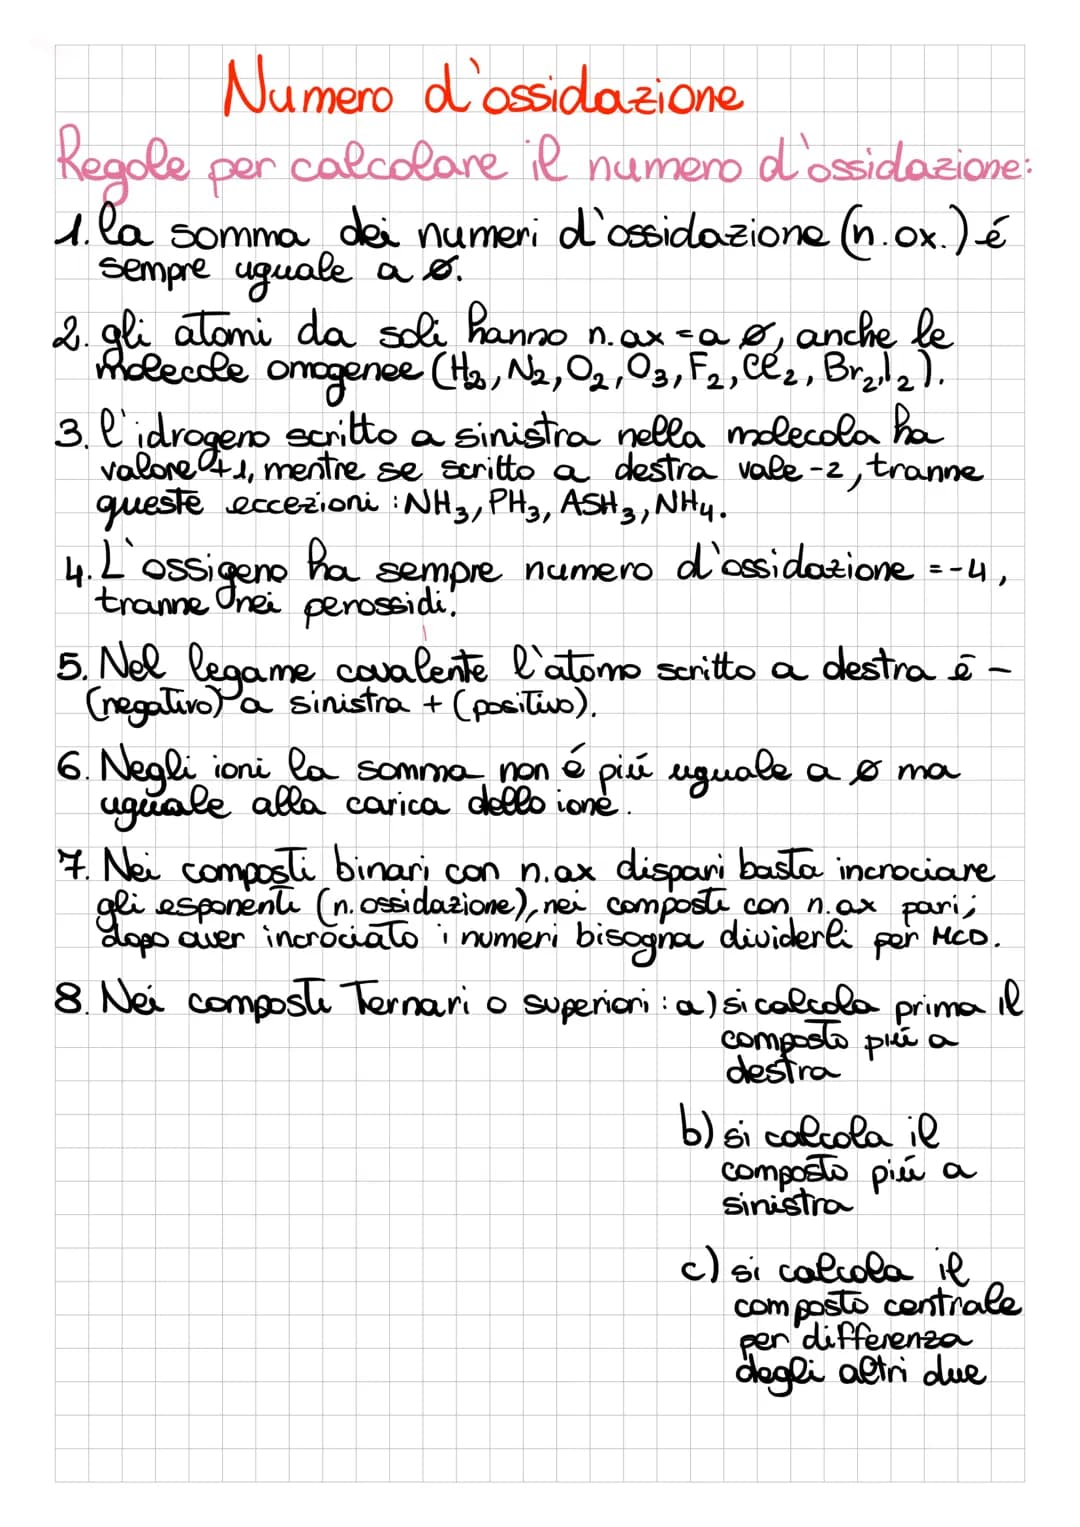 Numero d'ossidazione
Regole per calcolare il numero d'ossidazione:
1. la somma dei numeri d'ossidazione (n.ox.) é
sempre uguale a ø.
2. gli atomi da soli hanno n.ax = a ø, anche le
molecole omogenee (H₂, N₂, O₂, O₃, F₂, Cl₂, Br₂, I₂).
3. l'idrogeno scritto a sinistra nella molecola ha
valore +1, mentre se scritto a destra vale -2, tranne
queste eccezioni: NH₃, PH₃, ASH₃, NH₄.
4. L'ossigeno ha sempre numero d'ossidazione = -4,
tranne nei perossidi.
5. Nel legame covalente l'atomo scritto a destra é -
(negativo) a sinistra + (positivo).
6. Negli ioni la somma non é piú uguale a ø ma
uguale alla carica dello ione.
7. Nei composti binari con n.ax dispari basta incrociare
gli esponenti (n. ossidazione), nei composti con n.ax pari;
dopo aver incrociato i numeri bisogna dividerli per MCD.
8. Nei composti Ternari o superiori: a) si calcola prima il
composto piú a
destra
b) si calcola il
composto piú a
sinistra
c) si calcola il
composto centrale
per differenza
degli altri due